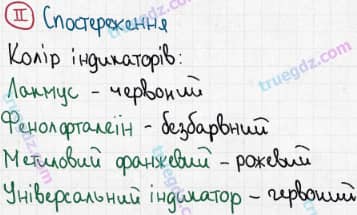 II Спостереження
Колір індикаторів:
Лакмус - червоний
Фенолфталеїн - безбарвний
Метиловий оранжевий - рожевий
Універсальний індикатор - червоний
truegdz.com
truegdz.com
truegdz.com